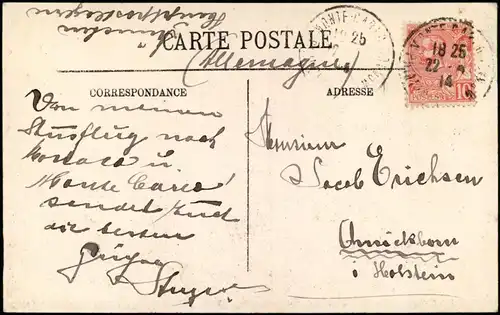 CARTE POSTALE
(Allemagne)
CORRESPONDANCE
ADRESSE
Von meinem
Ausflug nach
Monaco u
Monte Carlo
sendet Euch
die besten
Grüße
Monsieur
Jacob Erichsen
Quickborn
i Holstein
MONTE-CARLO
18 25
MONTE-CARLO
18 25
22
14